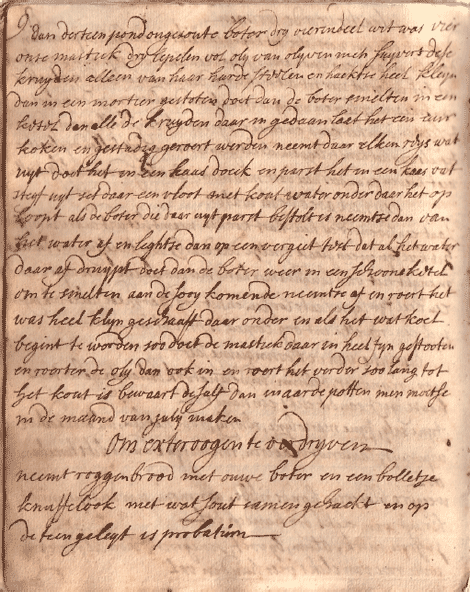 9
dan dertien pond ongesoute boter dry vierindeel wit was vier
onse mastick dry lepelen vol oly van olyven men suyvert dese
kruyden alleen van haar harde steelen en hacktse heel kleyn
dan in een mortier gestoten doet dan de boter smelten in een
ketel dan alle de kruyden daar in gedaan laat het een uur
koken en gestadig geroert werden neemt daar elken reys wat
uyt doet het in een kaas doeck en parst het in een kaas vat
styf uyt set daar een vloot met kout water onder daer het op
loopt als de boter die daar uyt parst bestolt is neemtse dan van
het water af en leghtse dan op een vergiet test dat al het water
daar af druypt doet dan de boter weer in een schoone ketel
om te smelten aan de sooy komende neemtse af en roert het
was heel kleyn geschaaft daar onder en als het wat koel
begint te worden soo doet de mastick daar in heel fyn gestooten
en roert er de oly dan ook in en roert het verder soo lang tot
het kout is bewaart de salf dan in aarde potten men moetse
in de maand van july maken
Om exteroogen te verdryven
neemt roggenbrood met ouwe boter en een bolletje
knufflook met wat sout samen gehackt en op
de teen gelegt is probatum